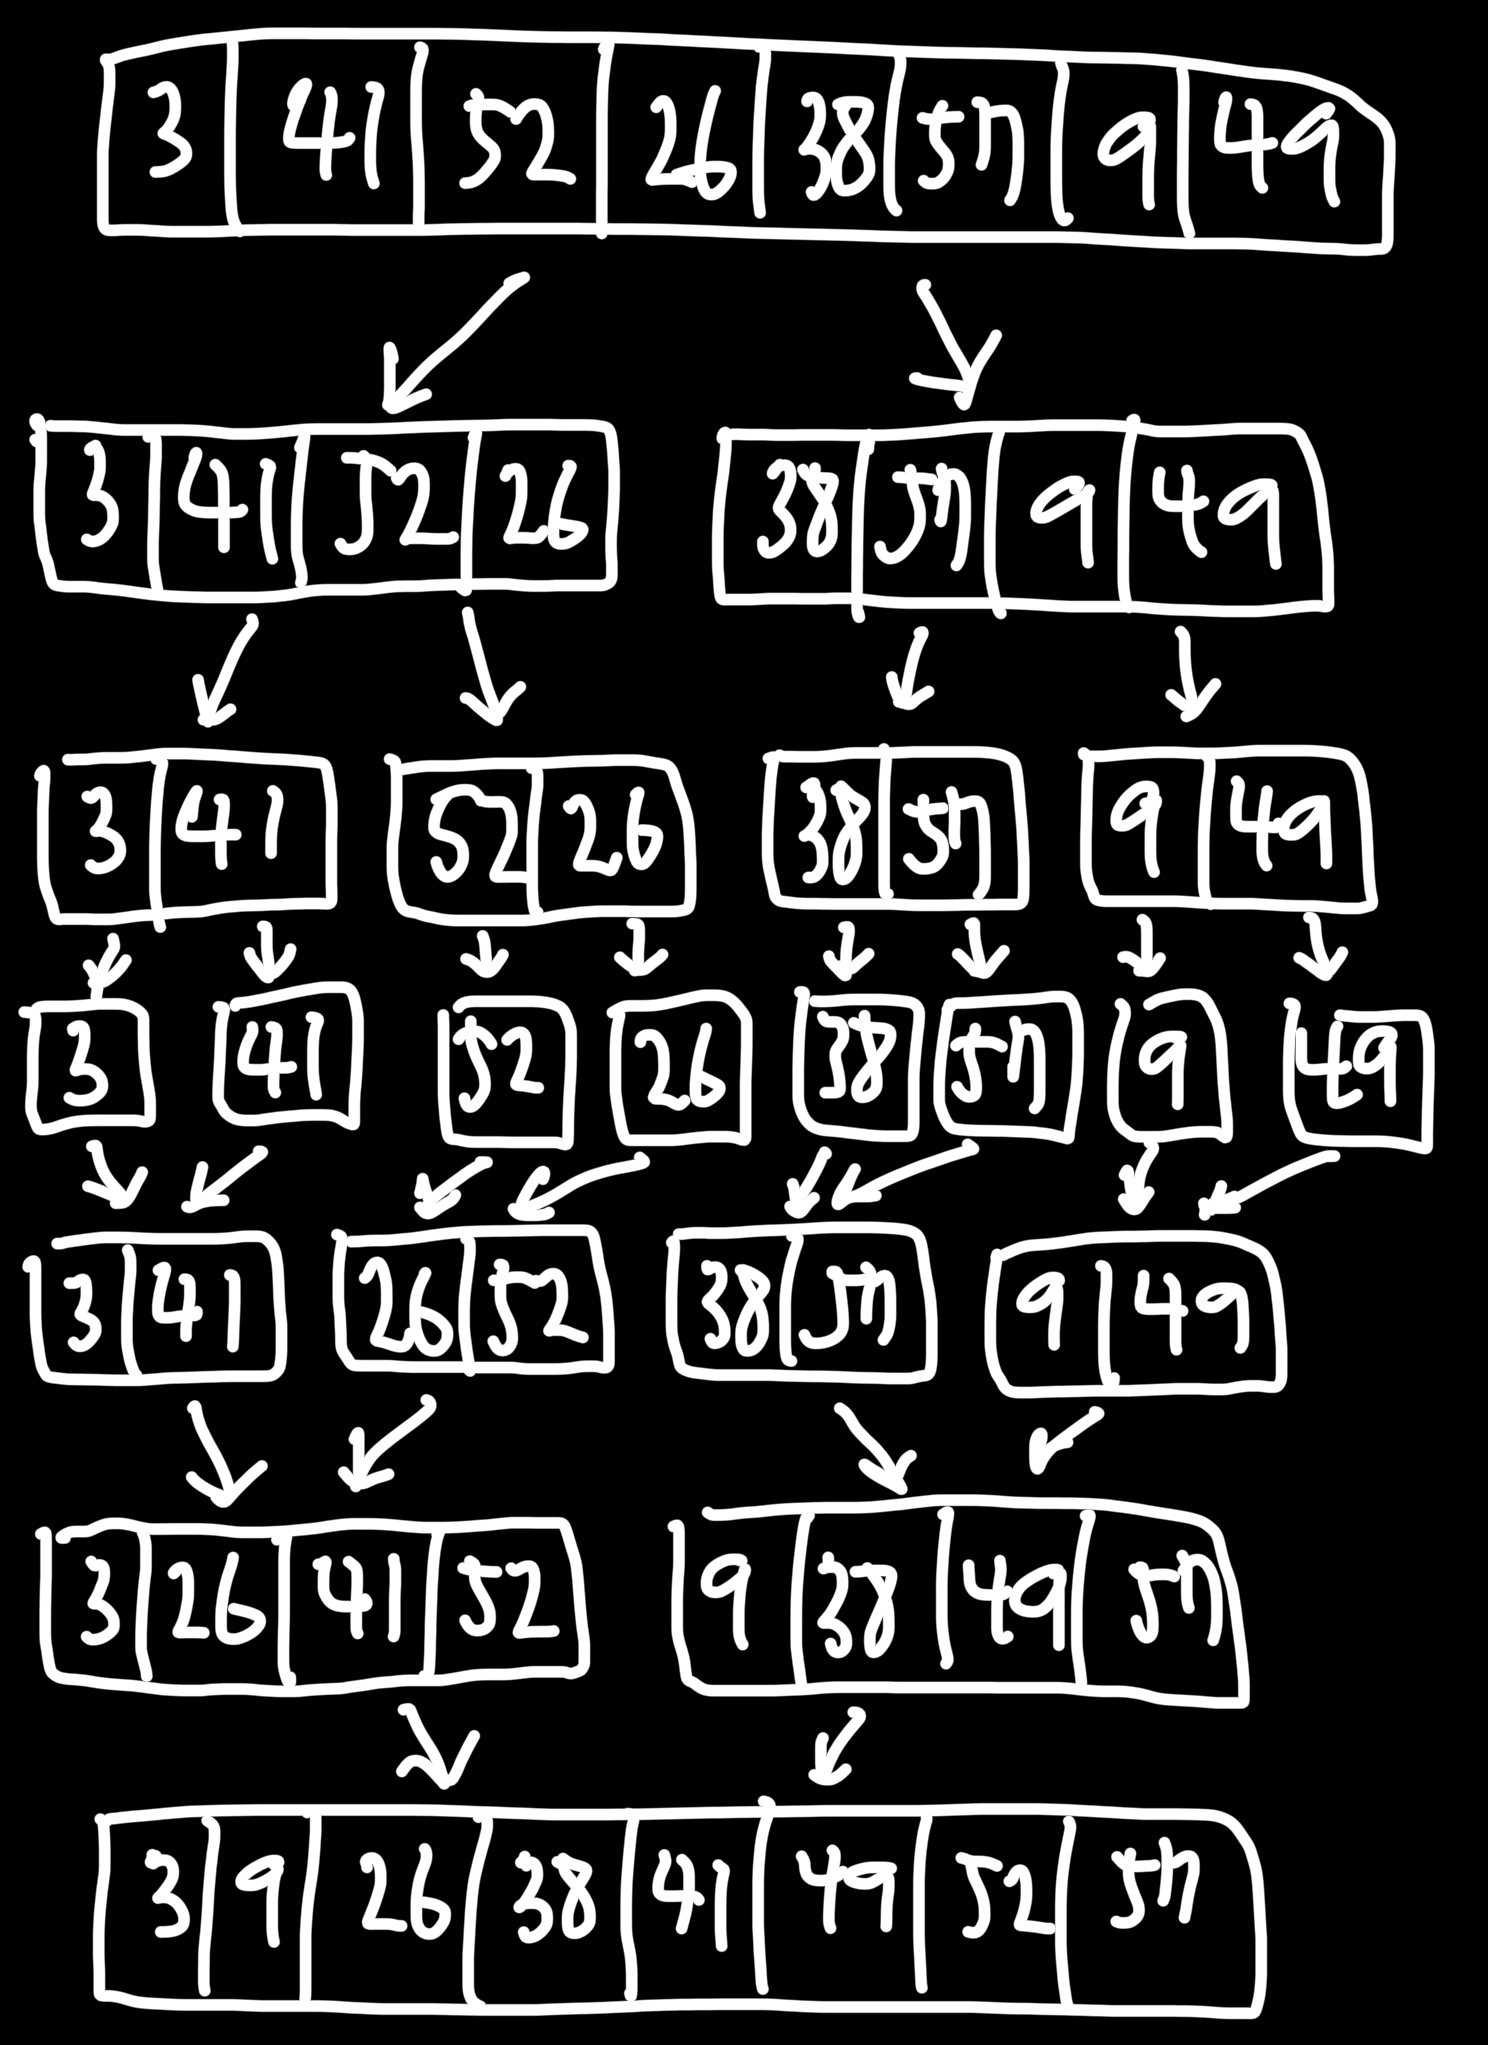 3 41 52 26 38 57 9 49
3 41 52 26 38 57 9 49
3 41 52 26 38 57 9 49
3 41 52 26 38 57 9 49
3 41 26 52 38 57 9 49
3 26 41 52 9 38 49 57
3 9 26 38 41 49 52 57